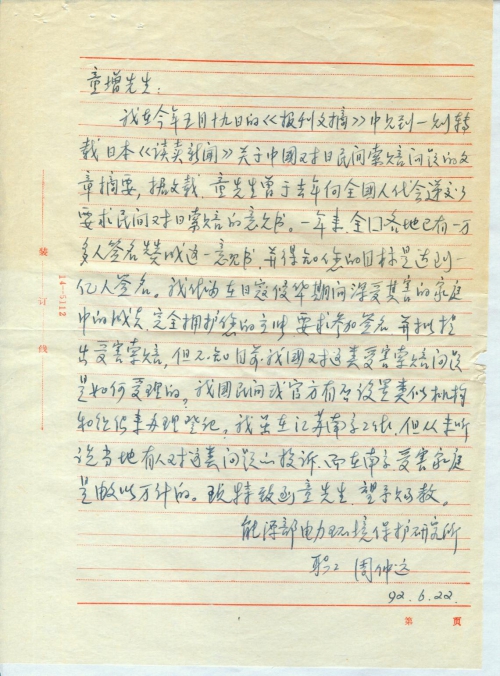 童增先生：
我在今年五月十九日的《报刊文摘》中见到一则转
载日本《读卖新闻》关于中国对日民间索赔问题的文
章摘要，据文载，童先生曾于去年向全国人代会递交了
要求民间对日索赔的意见书。一年来，全国各地已有一万
多人签名赞成这一意见书，并得知您的目标是达到一
亿人签名。我作为在日寇侵华期间深受其害的家庭
中的成员，完全拥护您的主张，要求参加签名，并拟提
出受害索赔，但不知目前我国对这类受害索赔问题
是如何受理的，我国民间或官方有否设置类似机构
和组织来办理登记，我虽在江苏南京工作，但从未听
说当地有人对这类问题的投诉，而在南京受害家庭
是数以万计的。现特致函童先生，望予赐教。
能源部电力环境保护研究所
职工 周仲
92.6.22.
第 页
装 订 线
14-5112